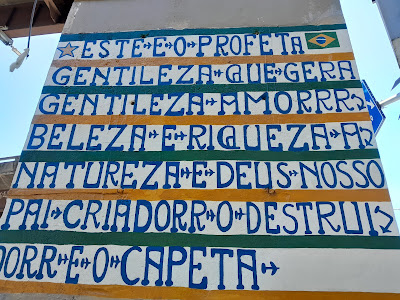 ESTE E O PROFETA
GENTILEZA QUE GERA
GENTILEZA AMORRR
BELEZA E RIQUEZA A
NATUREZA E DEUS NOSSO
PAI CRIADORR O DESTRUI
DORR E O CAPETA